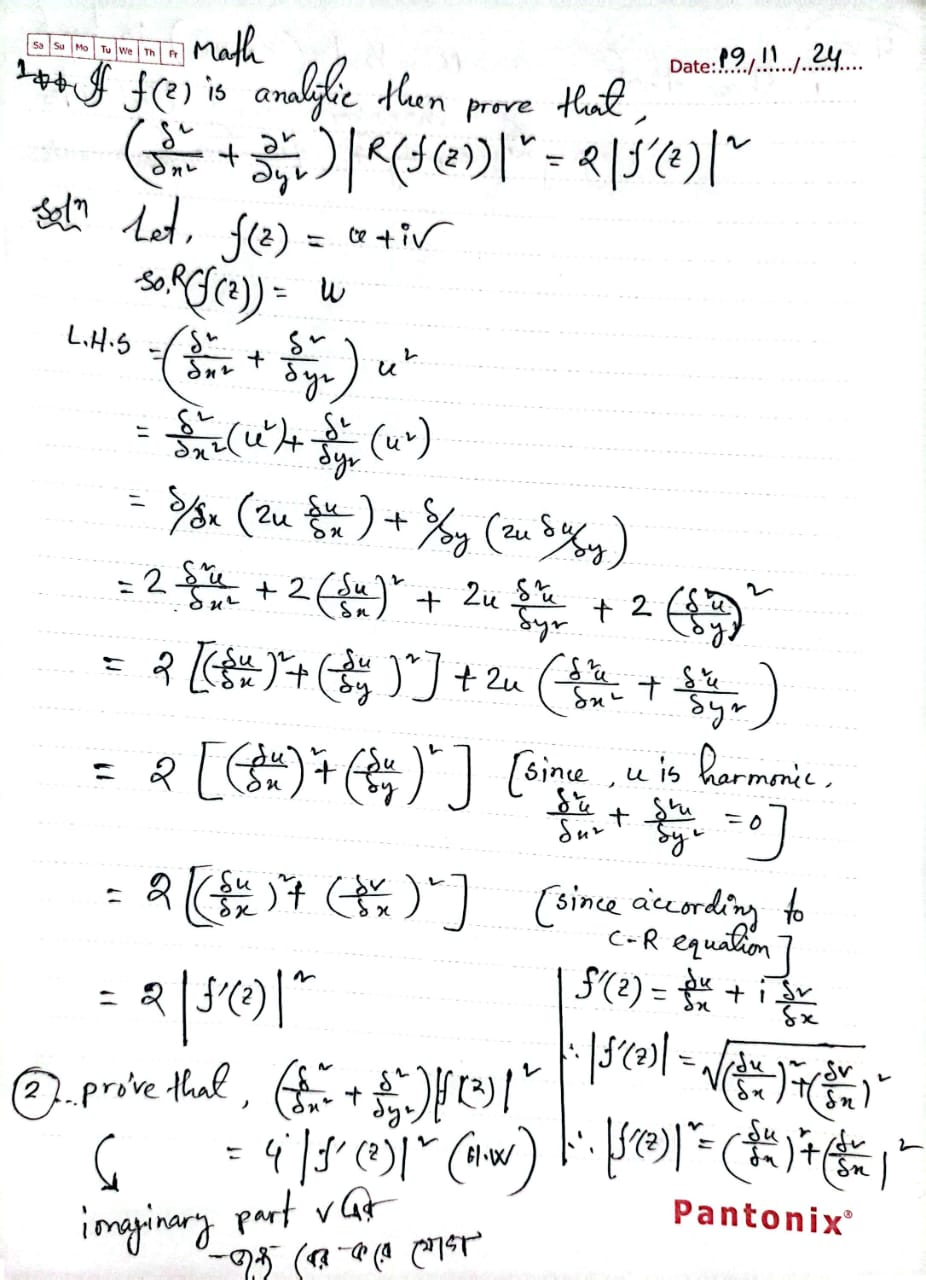 Sa Su Mo Tu We Th Fr Math Date: 19/11/24
If f(z) is analytic then prove that,
(δ²/δx² + ∂²/∂y²) |R(f(z))|² = 2|f'(z)|²
Solⁿ Let, f(z) = u + iv
so, R(f(z)) = u
L.H.S = (δ²/δx² + δ²/δy²) u²
= δ²/δx² (u²) + δ²/δy² (u²)
= δ/δx (2u δu/δx) + δ/δy (2u δu/δy)
= 2 δ²u/δx² + 2 (δu/δx)² + 2u δ²u/δy² + 2 (δ²u/δy)²
= 2 [(δu/δx)² + (δu/δy)²] + 2u (δ²u/δx² + δ²u/δy²)
= 2 [(δu/δx)² + (δu/δy)²] [since, u is harmonic.
δ²u/δx² + δ²u/δy² = 0]
= 2 [(δu/δx)² + (δv/δx)²] [since according to
C-R equation]
= 2 |f'(z)|²
f'(z) = δu/δx + i δv/δx
∴ |f'(z)| = √(δu/δx)² + (δv/δx)²
∴ |f'(z)|² = (δu/δx)² + (δv/δx)²
② prove that, (δ²/δx² + δ²/δy²) |f(z)|²
= 4 |f'(z)|² (H.W)
imaginary part v
Pantonix®